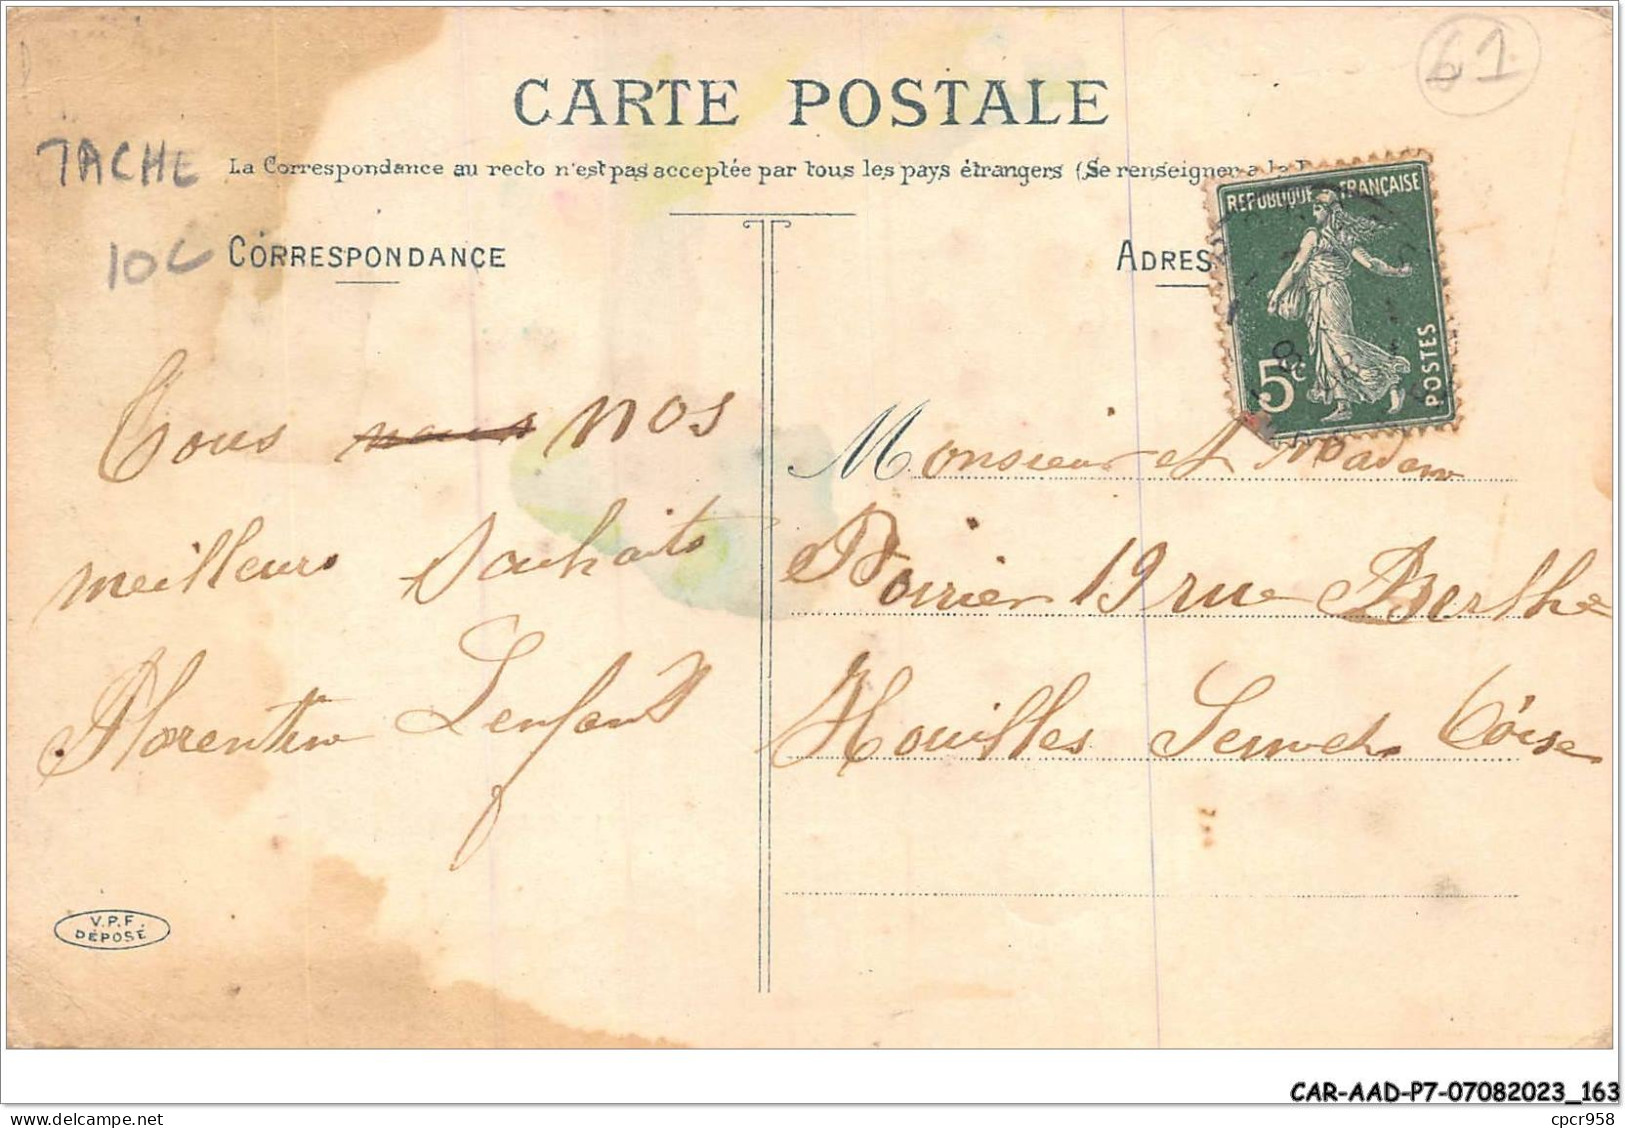 61
CARTE POSTALE
TACHE
La Correspondance au recto n'est pas acceptée par tous les pays étrangers (Se renseigner a la
10C
CORRESPONDANCE
ADRES
REPUBLIQUE FRANÇAISE
5c
POSTES
Tous nous nos
meilleurs souhaits
Florentin Lenfant
Monsieur et Madame
Poirier 19 rue Berthe
Houilles Seine et Oise
V.P.F.
DÉPOSÉ
CAR-AAD-P7-07082023_163
cpcr958